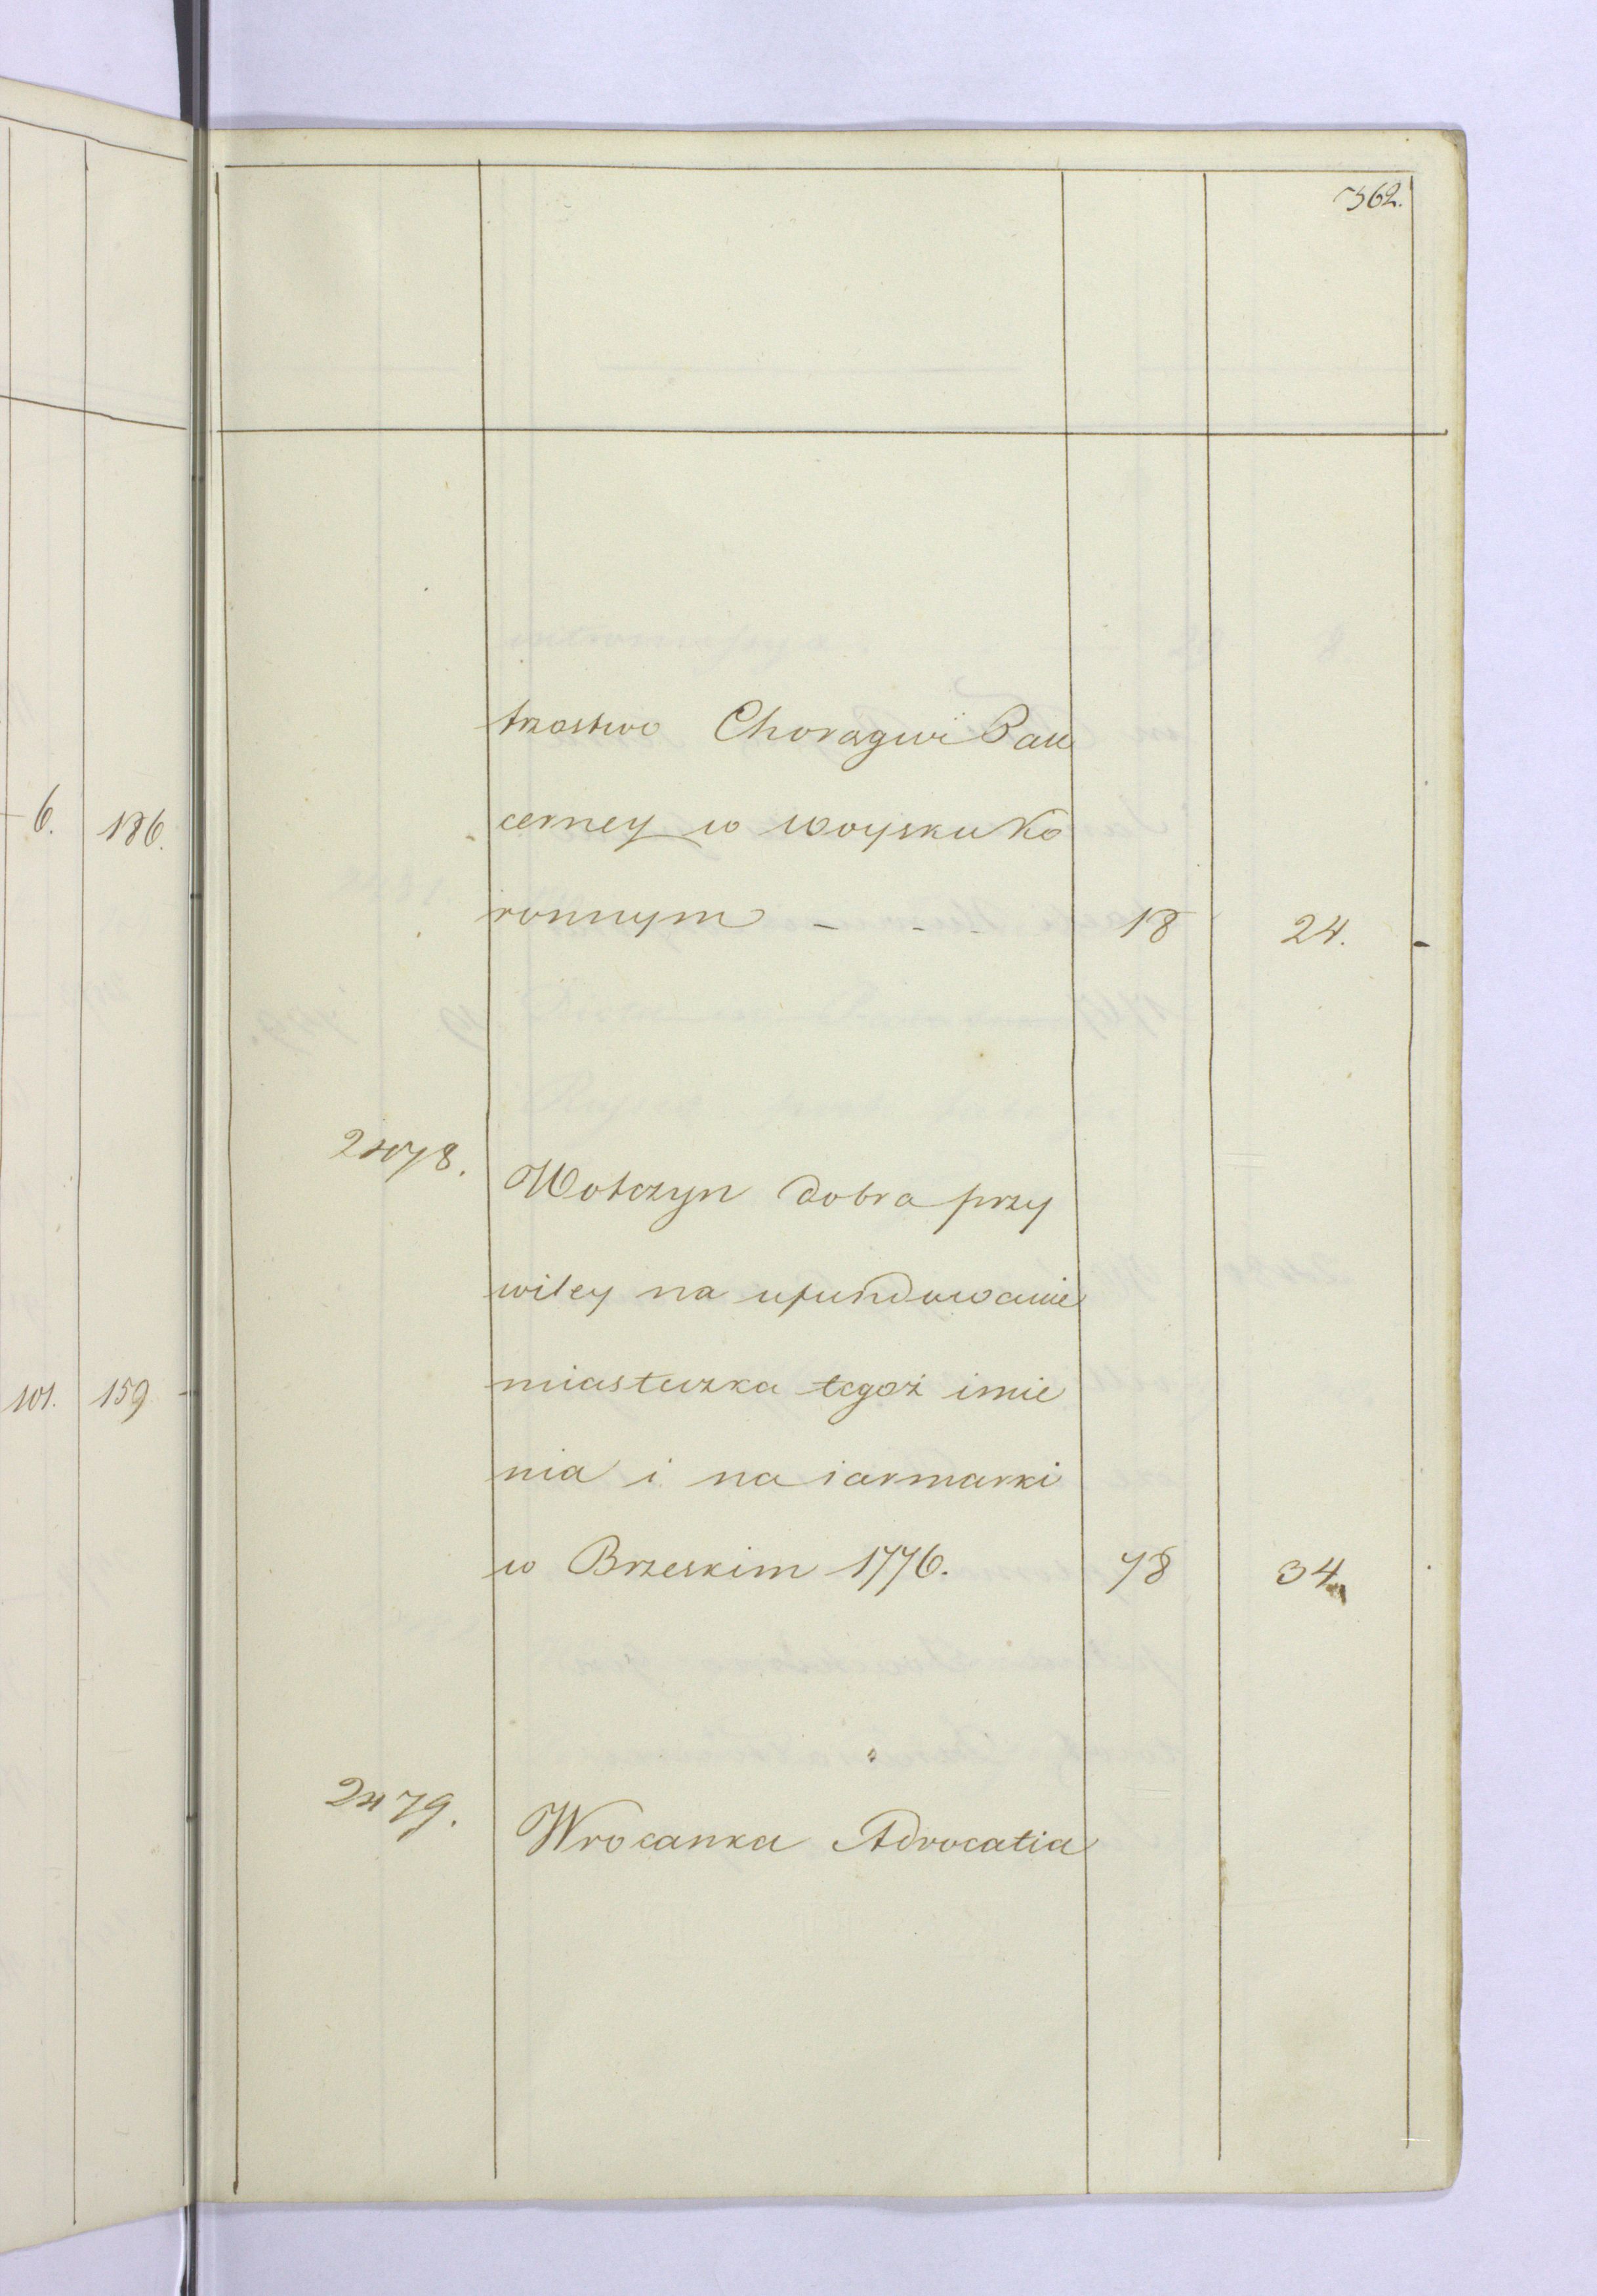 362.
6. 186.
trzostwo Choragwi Pan
cerney w woysku Ko
ronnym - - - 18 24.
2478.
Wotczyn dobra przy
wiley na ufundowanie
101. 159
miasteczka tegoż imie
nia i na iarmarki
w Brzeskim 1776. 78 34
2479.
Wrocanka Advocatia